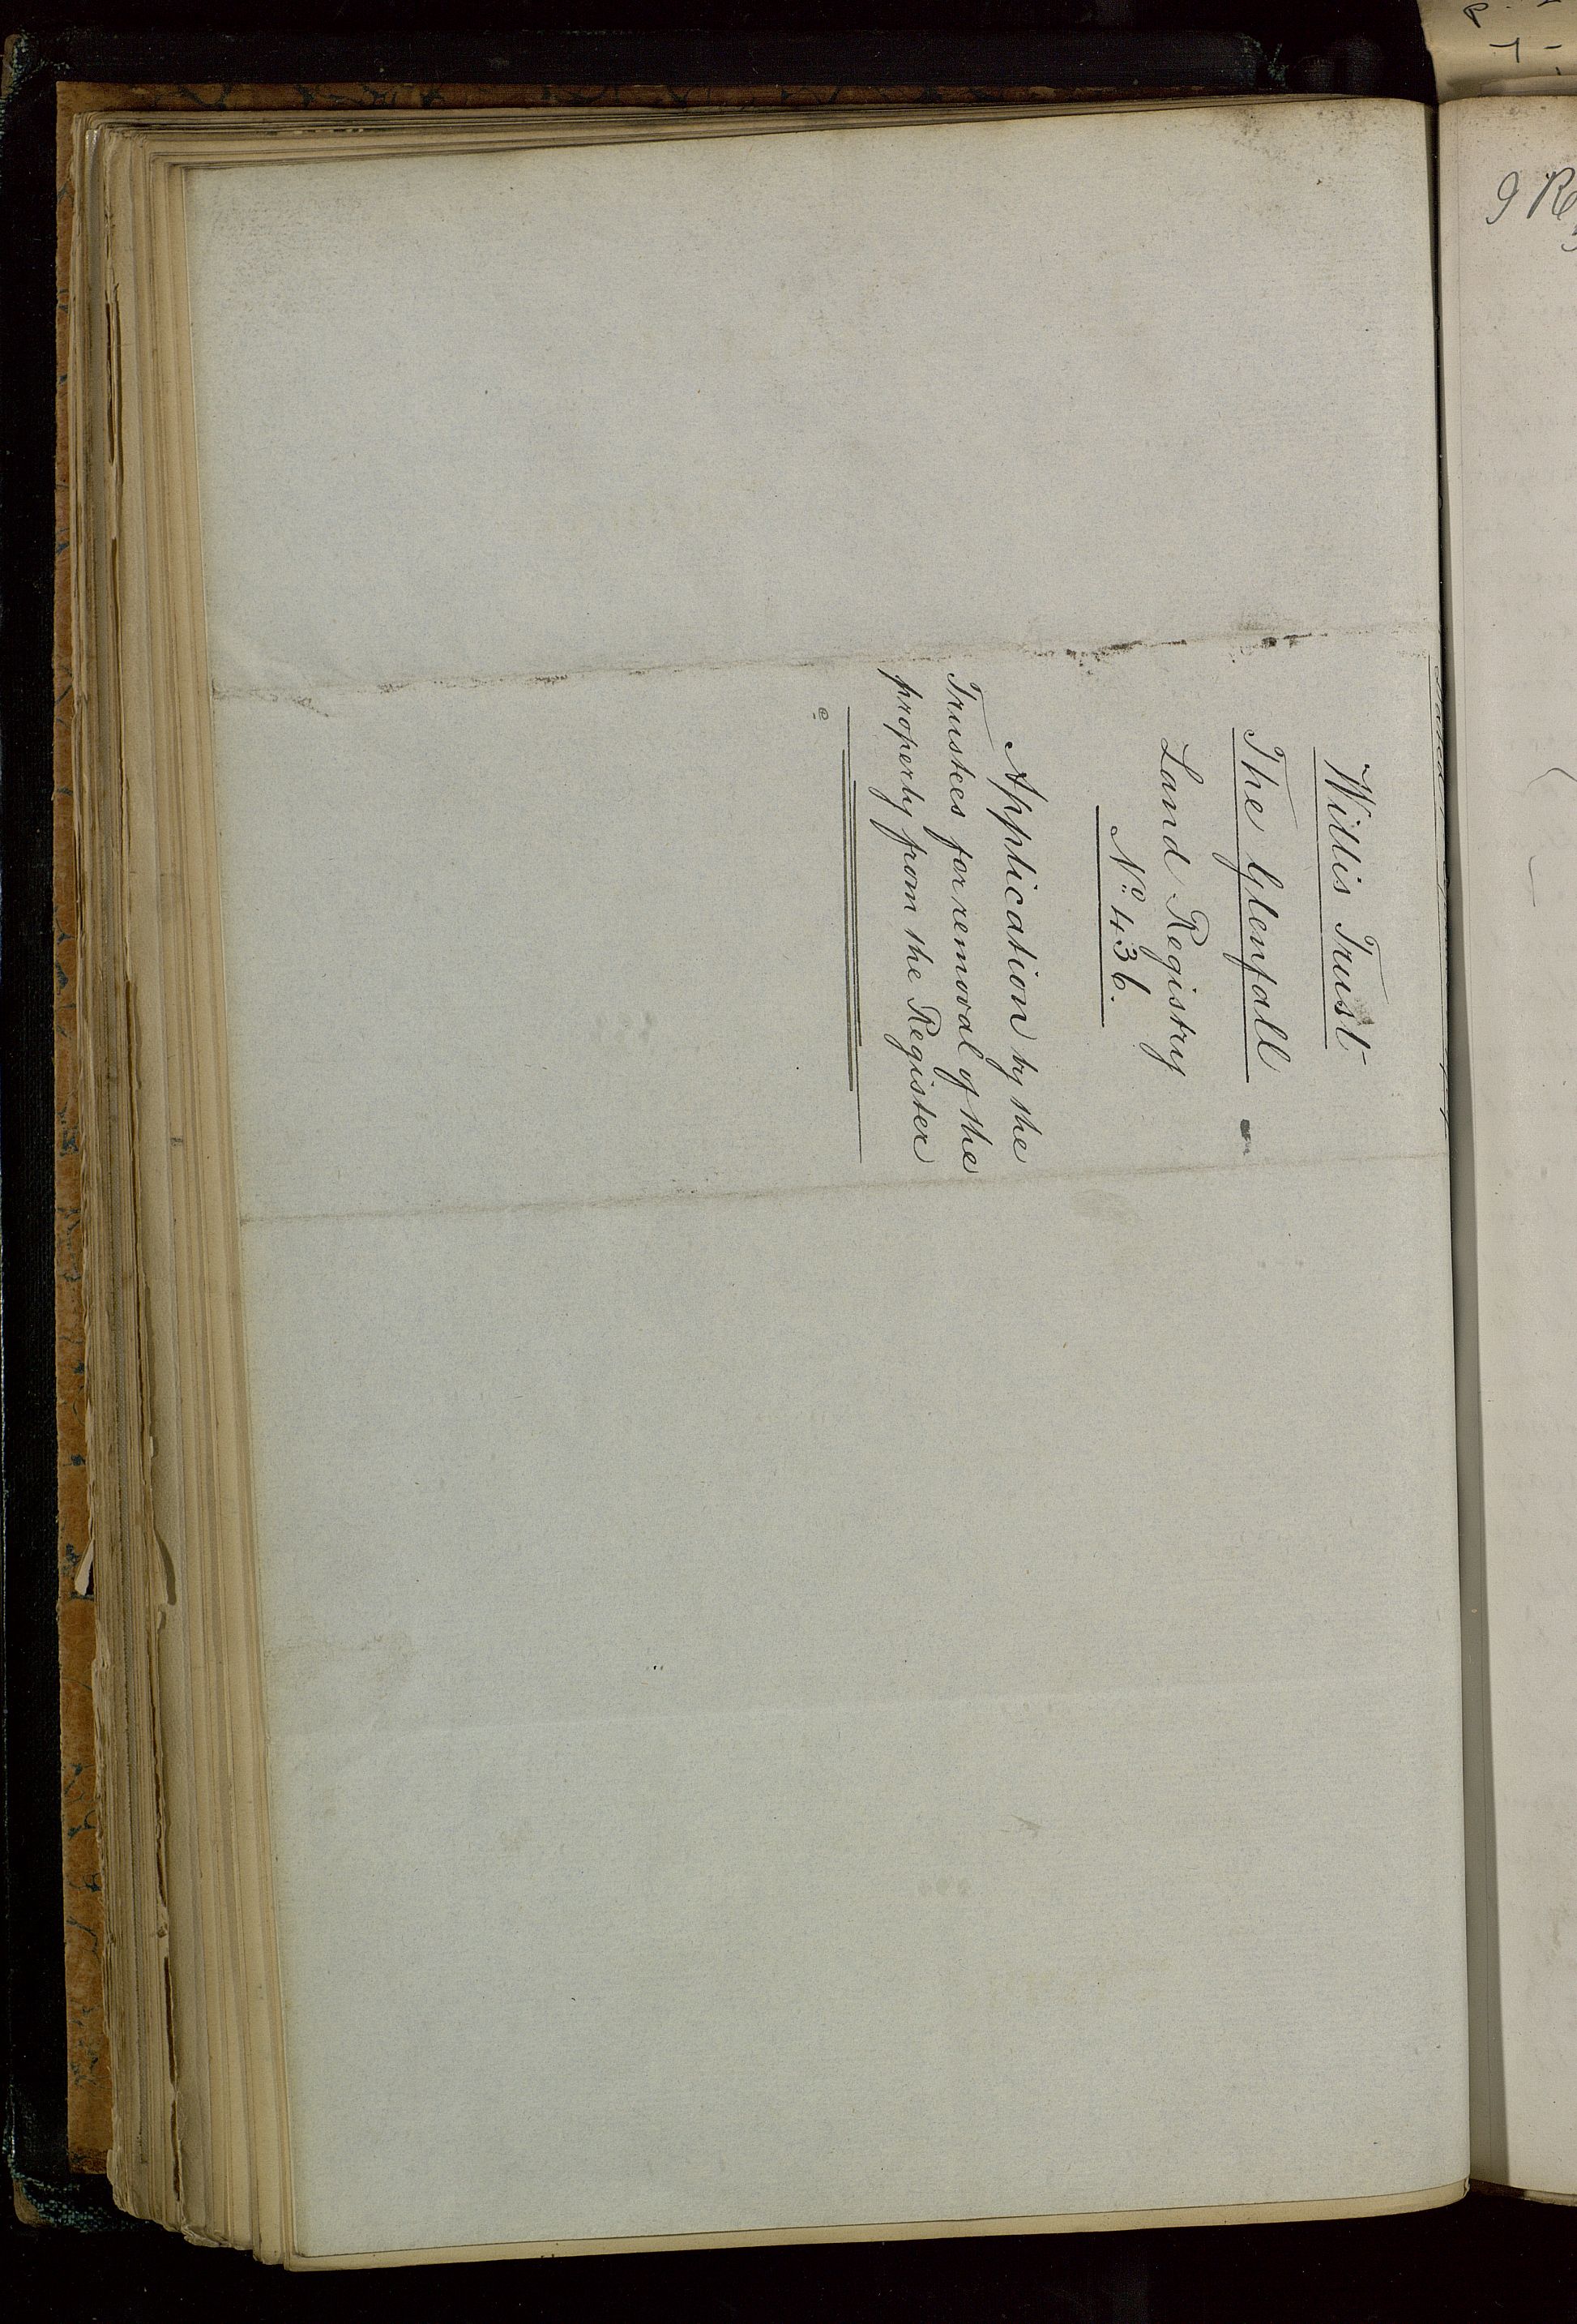 Willis Trust
The Glenfall
Land Registry
No. 436.
Application by the
Trustees for removal of the
property from the Register